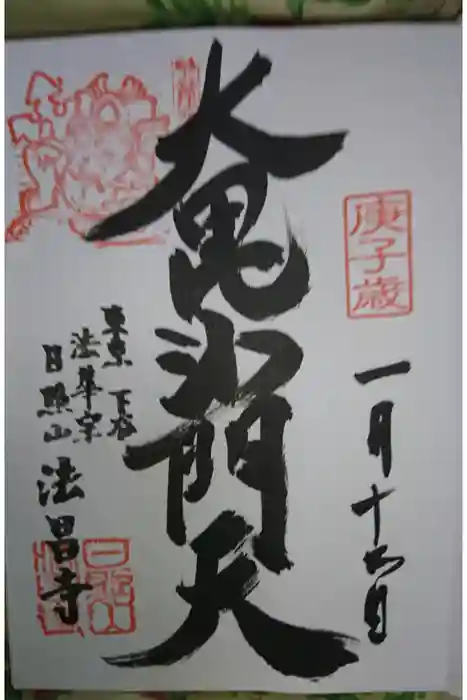 庚子歳
一月十六日
大毘沙門天
東京 下谷
法華宗
日照山
法昌寺